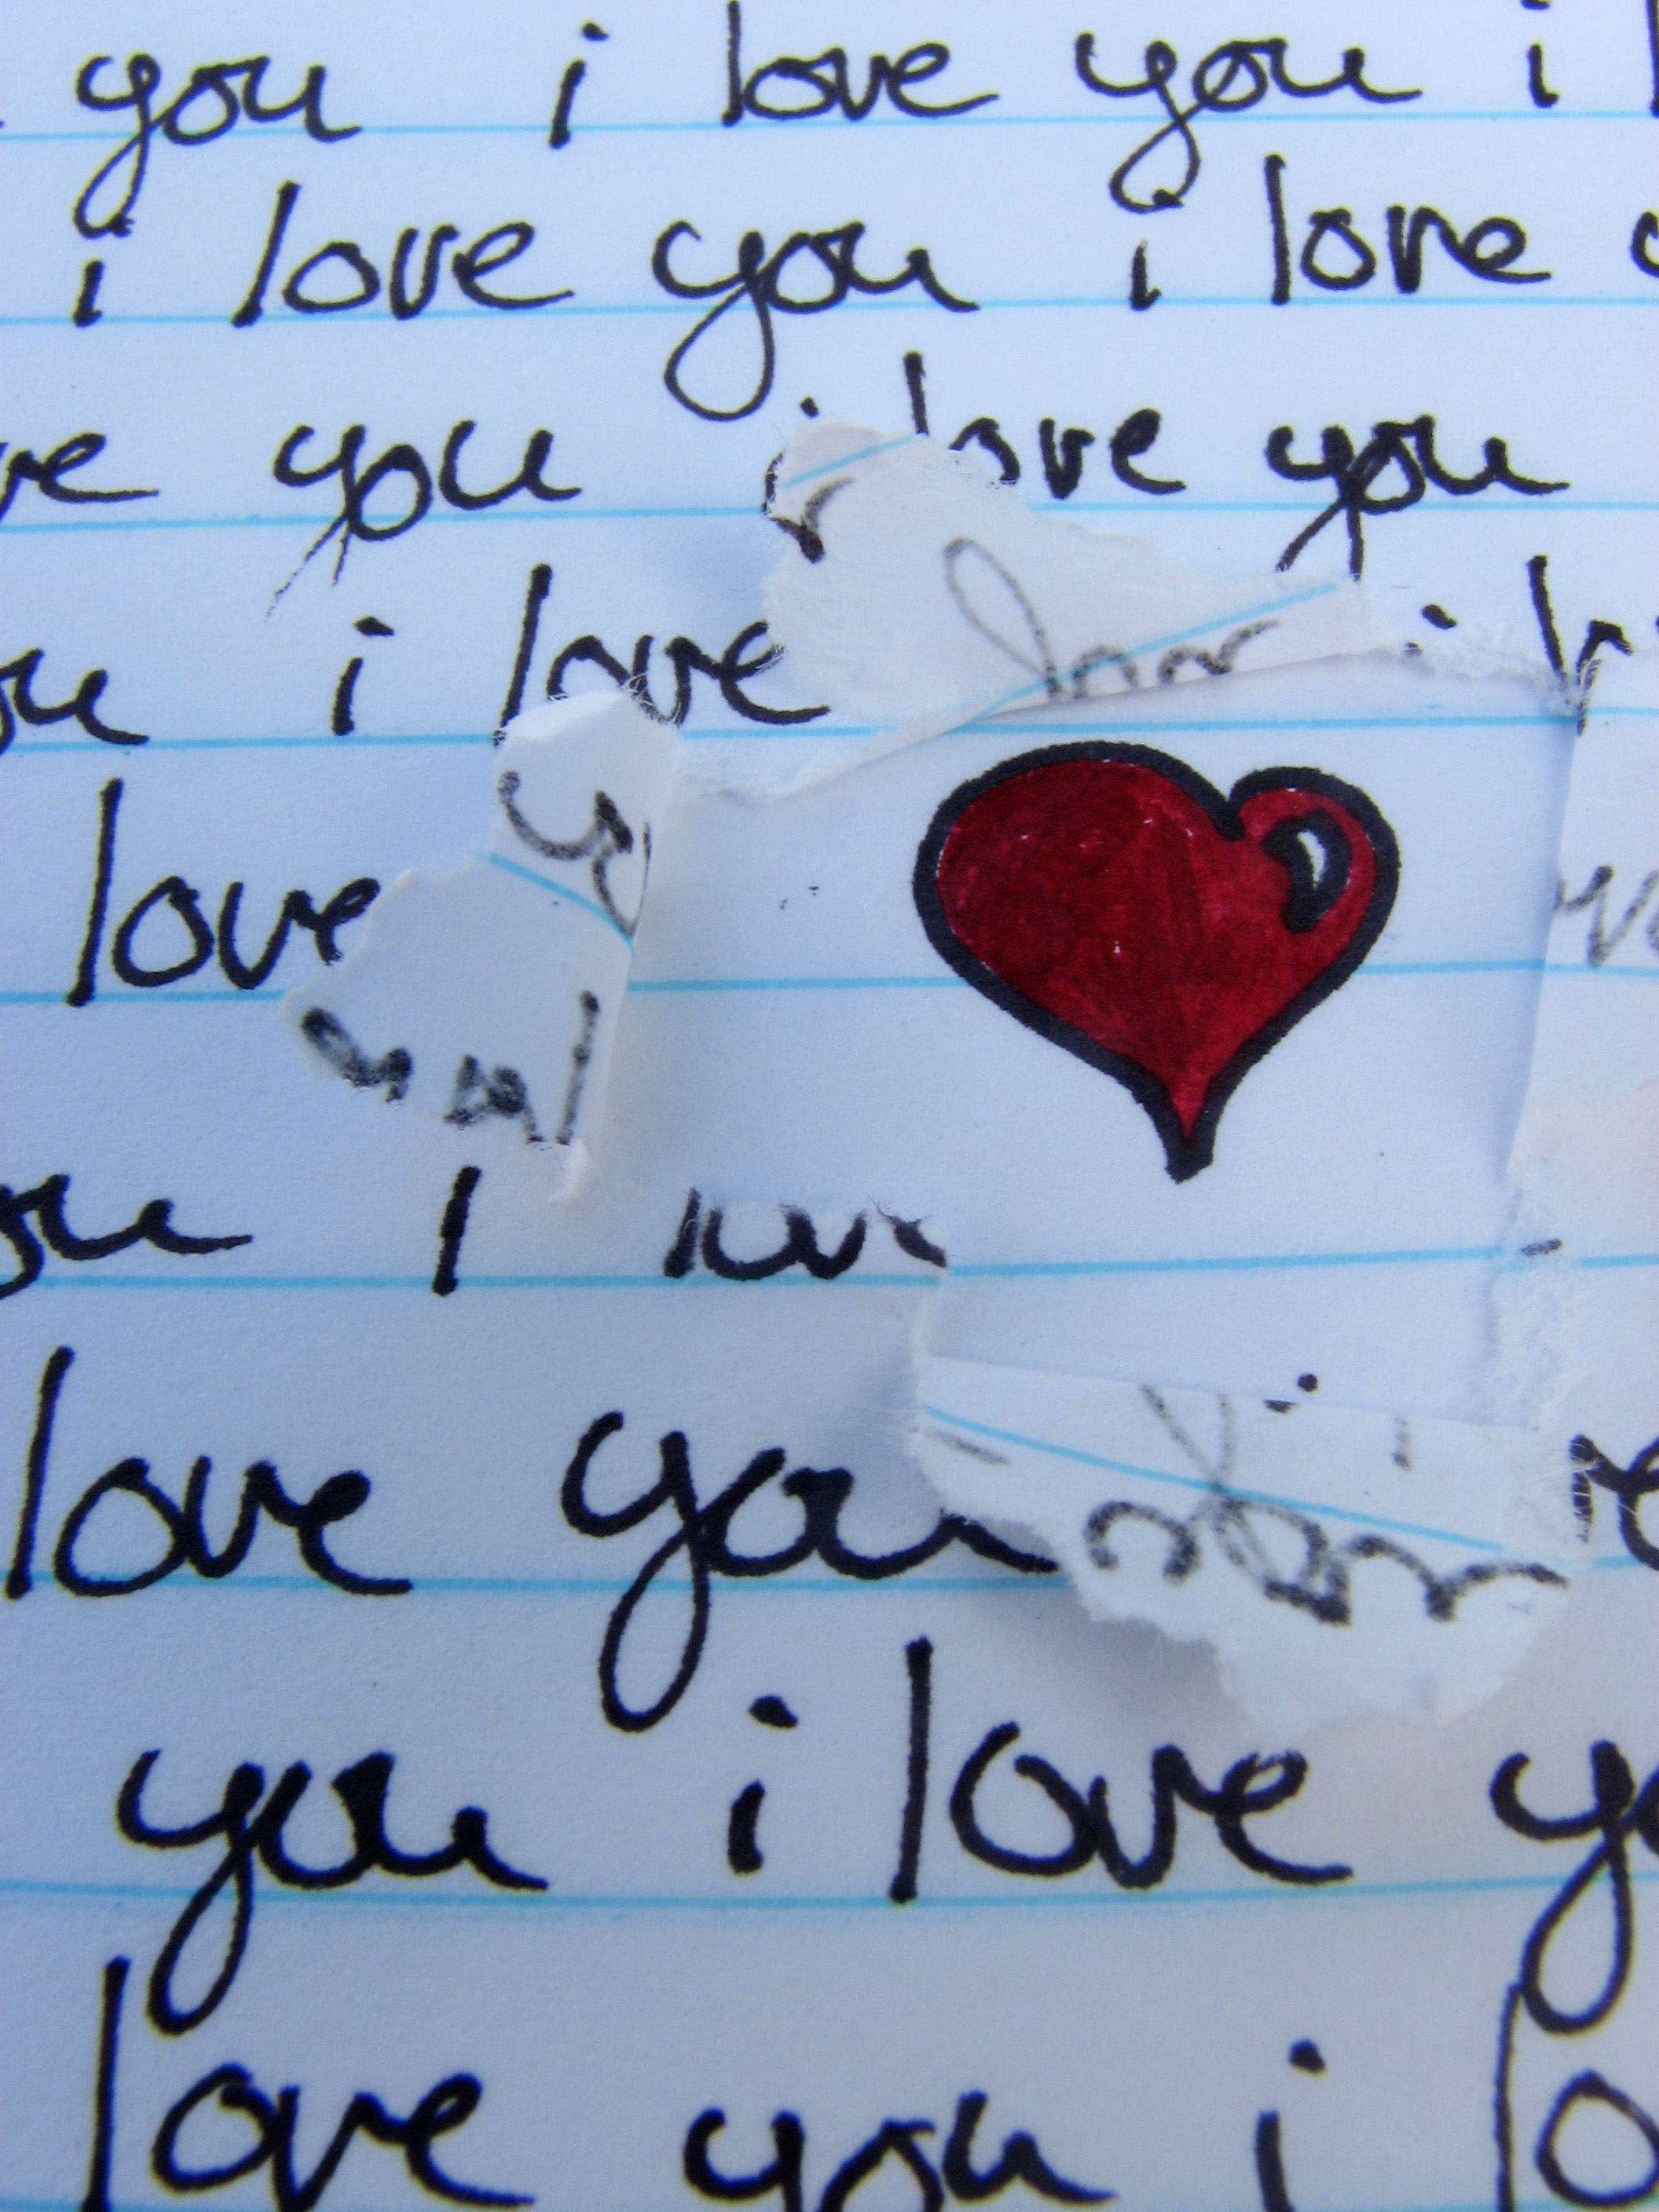 you i love you i
i love you i love
you love you
i love i
love
i
love you
you i love
love you i lo